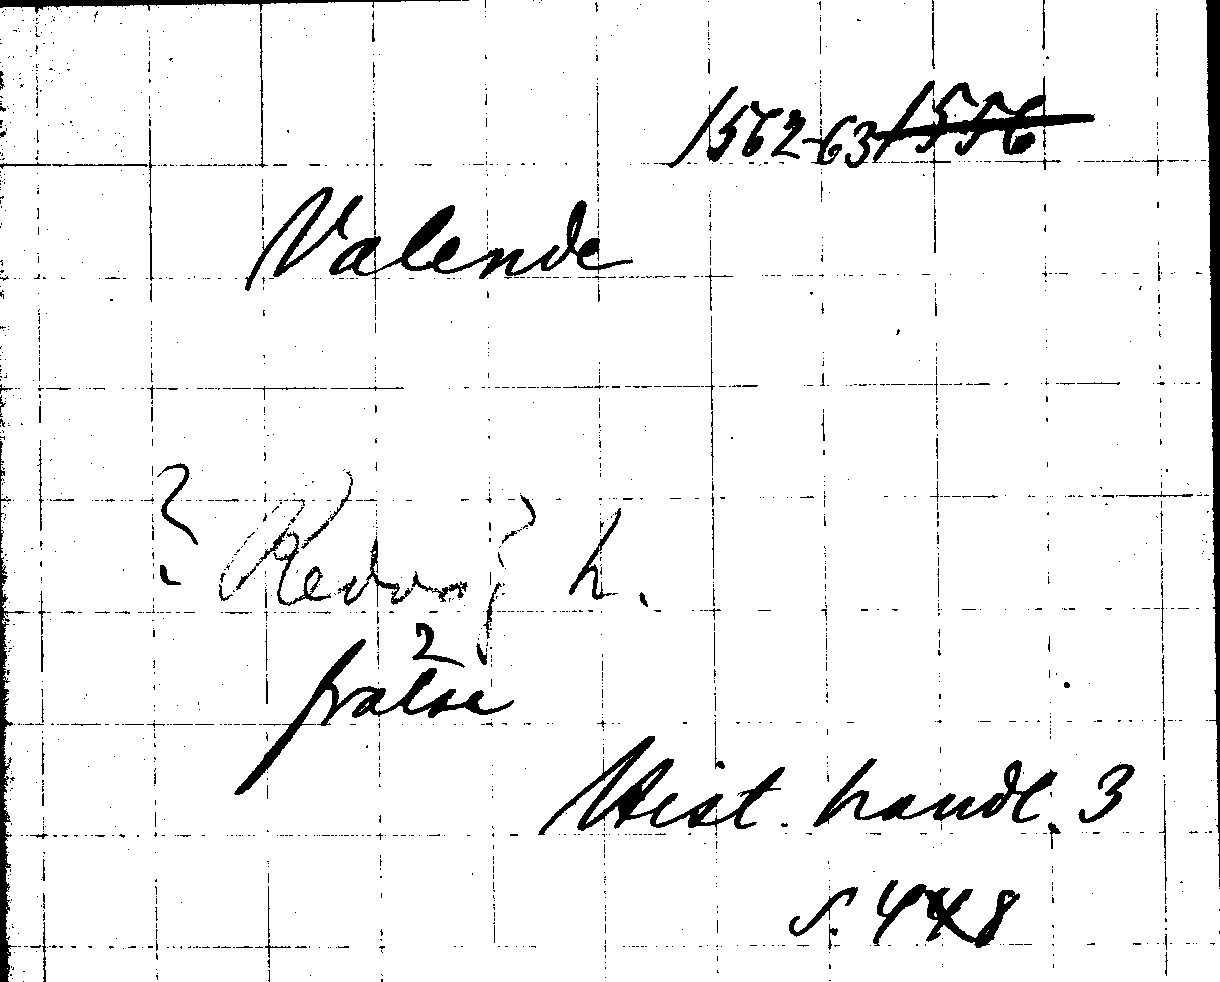 1562-63 1556
Valende
? Redvä ? h.
2
frälse
Hist. handl. 3
s. 448